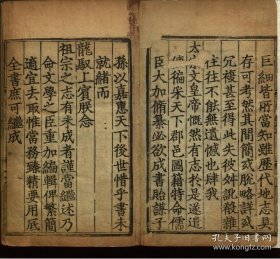 巨細皆所當知雖歷代地志具
存可考然其間簡或脫略詳或
冗複甚至得此失彼舛訛殽雜
往往不能無遺憾也肆我
太宗文皇帝慨然有志於是遂遣
使徧采天下郡邑圖籍特命儒
臣大加脩纂必欲成書貽謀子
孫以嘉惠天下後世惜乎書未
就緒而
龍馭上賓朕念
祖宗之志有未成者謹當繼述乃
命文學之臣重加編輯俾繁簡
適宜去取惟當務臻精要用底
全書庶可繼成
孔夫子旧书网